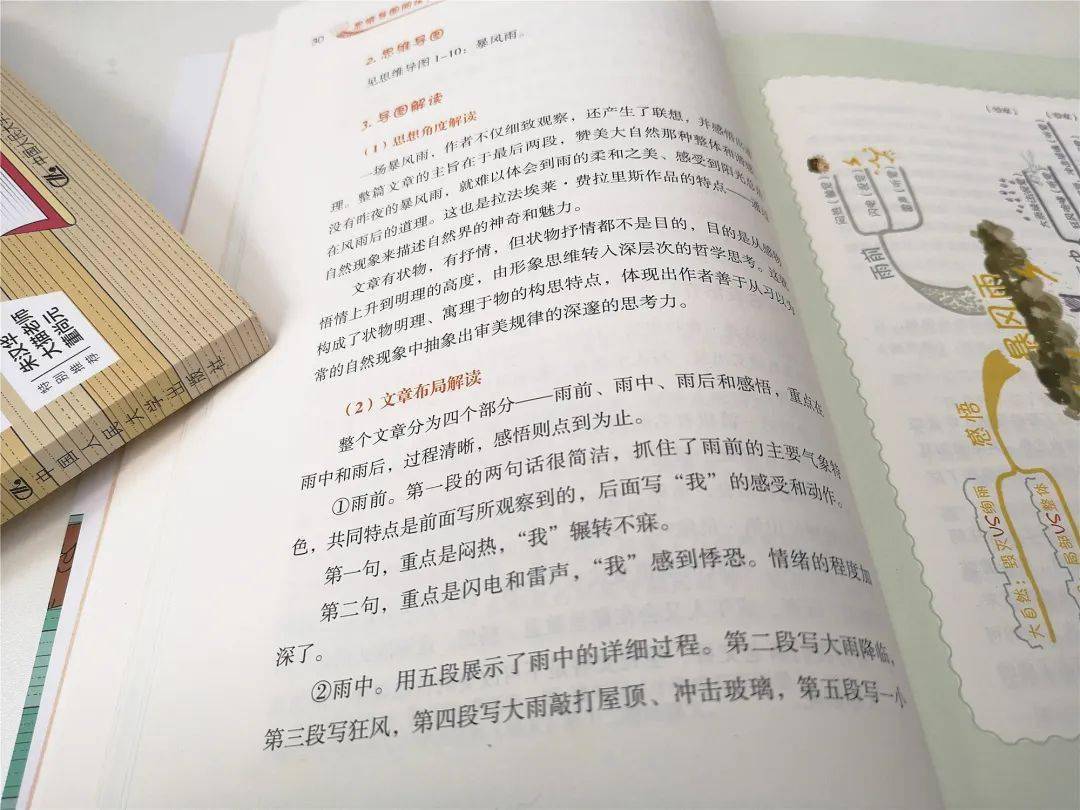 30
2. 思维导图
见思维导图1-10：暴风雨。
3. 导图解读
（1）思想角度解读
一场暴风雨，作者不仅细致观察，还产生了联想，并感悟
理。整篇文章的主旨在于最后两段，赞美大自然那种整体和
没有昨夜的暴风雨，就难以体会到雨的柔和之美、感受到阳光总
在风雨后的道理。这也是拉法埃莱·费拉里斯作品的特点——
自然现象来描述自然界的神奇和魅力。
文章有状物，有抒情，但状物抒情都不是目的，目的是从感物
悟情上升到明理的高度，由形象思维转入深层次的哲学思考。这
构成了状物明理、寓理于物的构思特点，体现出作者善于从习以为
常的自然现象中抽象出审美规律的深邃的思考力。
（2）文章布局解读
整个文章分为四个部分——雨前、雨中、雨后和感悟，重点在
雨中和雨后，过程清晰，感悟则点到为止。
①雨前。第一段的两句话很简洁，抓住了雨前的主要气象特
色，共同特点是前面写所观察到的，后面写“我”的感受和动作。
第一句，重点是闷热，“我”辗转不寐。
第二句，重点是闪电和雷声，“我”感到悸恐。情绪的程度加
深了。
②雨中。用五段展示了雨中的详细过程。第二段写大雨降临，
第三段写狂风，第四段写大雨敲打屋顶、冲击玻璃，第五段写一小
特别推荐
中国人民大学出版社
暴风雨
雨前
闷热（触觉）
闪电（视觉）
雷声（听觉）
感悟
大自然：毁灭VS绚丽
局部VS整体